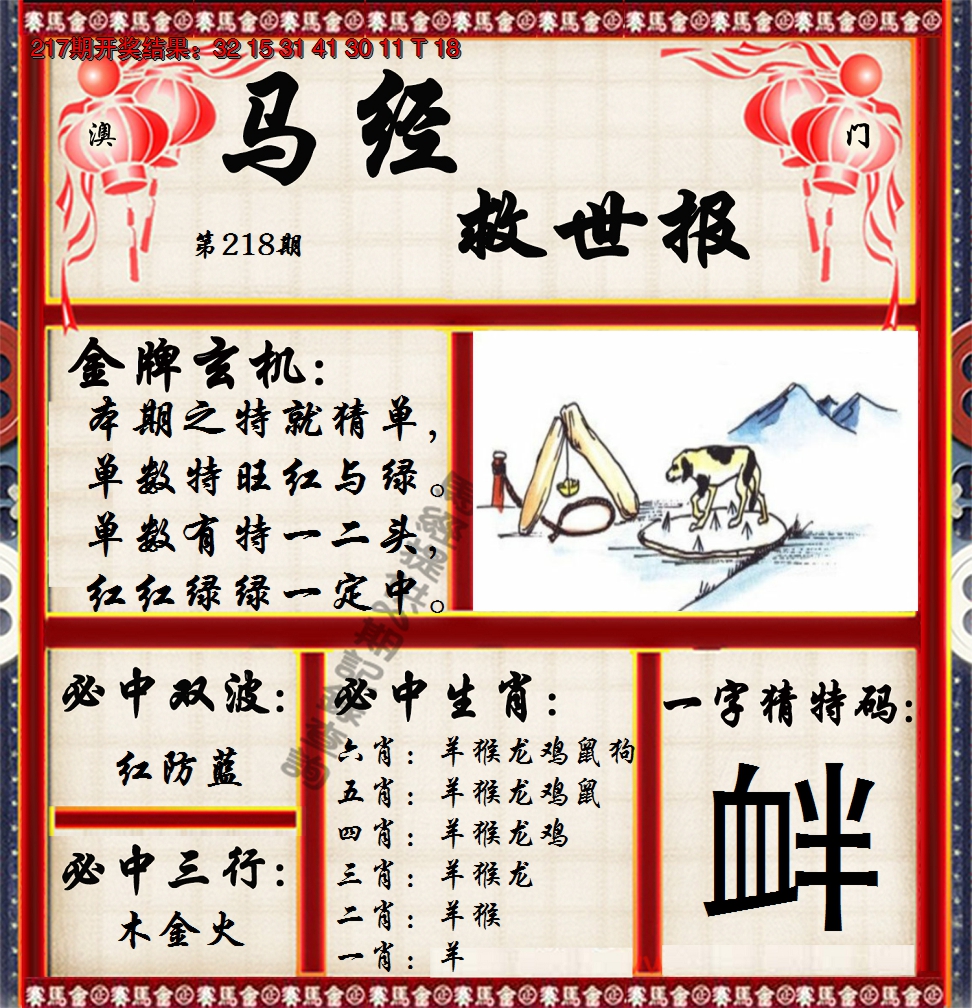 賽馬會 賽馬會 賽馬會 賽馬會 賽馬會 賽馬會 賽馬會 賽馬會 賽馬會
217期开奖结果：32 15 31 41 30 11 T 18
澳 门
马经
救世报
第218期
金牌玄机：
本期之特就猜单，
单数特旺红与绿。
单数有特一二头，
红红绿绿一定中。
必中双波：
红防蓝
必中三行：
木金火
必中生肖：
六肖：羊猴龙鸡鼠狗
五肖：羊猴龙鸡鼠
四肖：羊猴龙鸡
三肖：羊猴龙
二肖：羊猴
一肖：羊
一字猜特码：
衅